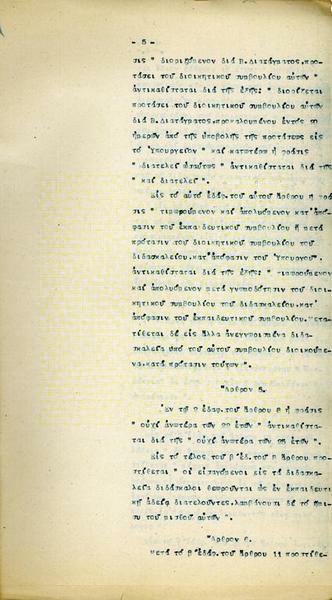 - 5 -
σις " διοριζόμενον διά Β.Διατάγματος.προ-
τάσει τοῦ διοικητικοῦ συμβουλίου αὐτῶν "
ἀντικαθίσταται διά τῆς ἑξῆς: " διορίζεται
προτάσει τοῦ διοικητικοῦ συμβουλίου αὐτῶν
διά Β.Διατάγματος.προκαλουμένου ἐντός
ἡμερῶν ἀπό τῆς ὑποβολῆς τῆς προτάσεως εἰς
τό Ὑπουργεῖον " καί κατωτέρω ἡ φράσις
" διατελεῖ ὡσαύτως " ἀντικαθίσταται διά τῆς
" καί διατελεῖ ".
Εἰς τό αὐτό ἐδάφ.τοῦ αὐτοῦ ἄρθρου ἡ φρά
σις " τιμωρούμενον καί ἀπολυόμενον κατ'ἀπό-
φασιν τοῦ ἐκπαιδευτικοῦ συμβουλίου ἤ μετά
πρότασιν τοῦ διοικητικοῦ συμβουλίου τοῦ
διδασκαλείου.κατ'ἀπόφασιν τοῦ Ὑπουργοῦ".
ἀντικαθίσταται διά τῆς ἑξῆς: " τιμωρούμενον
καί ἀπολυόμενον μετά γνωμοδότησιν τοῦ διοι-
κητικοῦ συμβουλίου τοῦ διδασκαλείου.κατ'
ἀπόφασιν τοῦ ἐκπαιδευτικοῦ συμβουλίου.Μετα-
τίθεται δέ εἰς ἄλλα ἀνεγνωρισμένα διδα-
σκαλεῖα ὑπό τοῦ αὐτοῦ συμβουλίου διοικούμε-
να.κατά πρότασιν τούτων".
Ἄρθρον 5.
Ἐν τῷ 2 ἐδαφ.τοῦ ἄρθρου 8 ἡ φράσις
" οὐχί ἀνωτέρα τῶν 22 ἐτῶν " ἀντικαθίστα-
ται διά τῆς " οὐχί ἀνωτέρα τῶν 25 ἐτῶν ".
Εἰς τό τέλος τοῦ β'ἐδ.τοῦ 8 ἄρθρου.προ-
στίθεται " οἱ εἰσαγόμενοι εἰς τά διδασκα-
λεῖα διδάσκαλοι θεωροῦνται ὡς ἐν ἐκπαιδευτι-
κῇ ἀδείᾳ διατελοῦντες.λαμβάνουσι δέ τό ἥμι-
συ τοῦ μισθοῦ αὐτῶν ".
Ἄρθρον 6.
Μετά τό β'ἐδάφ.τοῦ ἄρθρου 11 προστίθε-